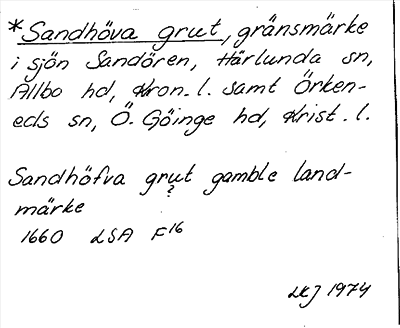 *Sandhöva grut, gränsmärke
i sjön Sandören, Härlunda sn,
Allbo hd, Kron. l. samt Örken-
eds sn, Ö. Göinge hd, Krist. l.
Sandhöfva grut gamble land-
?
märke
1660 LSA F16
LKJ 1974